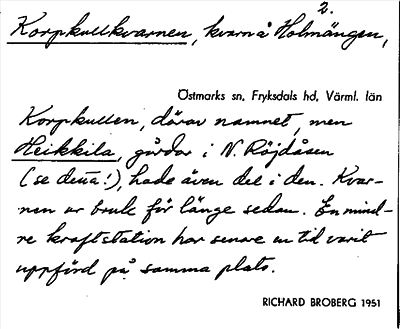 2.
Korpkullkvarnen, kvarn å Holmängen,
Östmarks sn, Fryksdals hd, Värml. län
Korpkullen, därav namnet, men
Heikkila, gårdar i N. Röjdåsen
(se dessa!), hade även del i den. Kvar-
nen ur bruk för länge sedan. En mind-
re kraftstation har senare en tid varit
uppförd på samma plats.
RICHARD BROBERG 1951